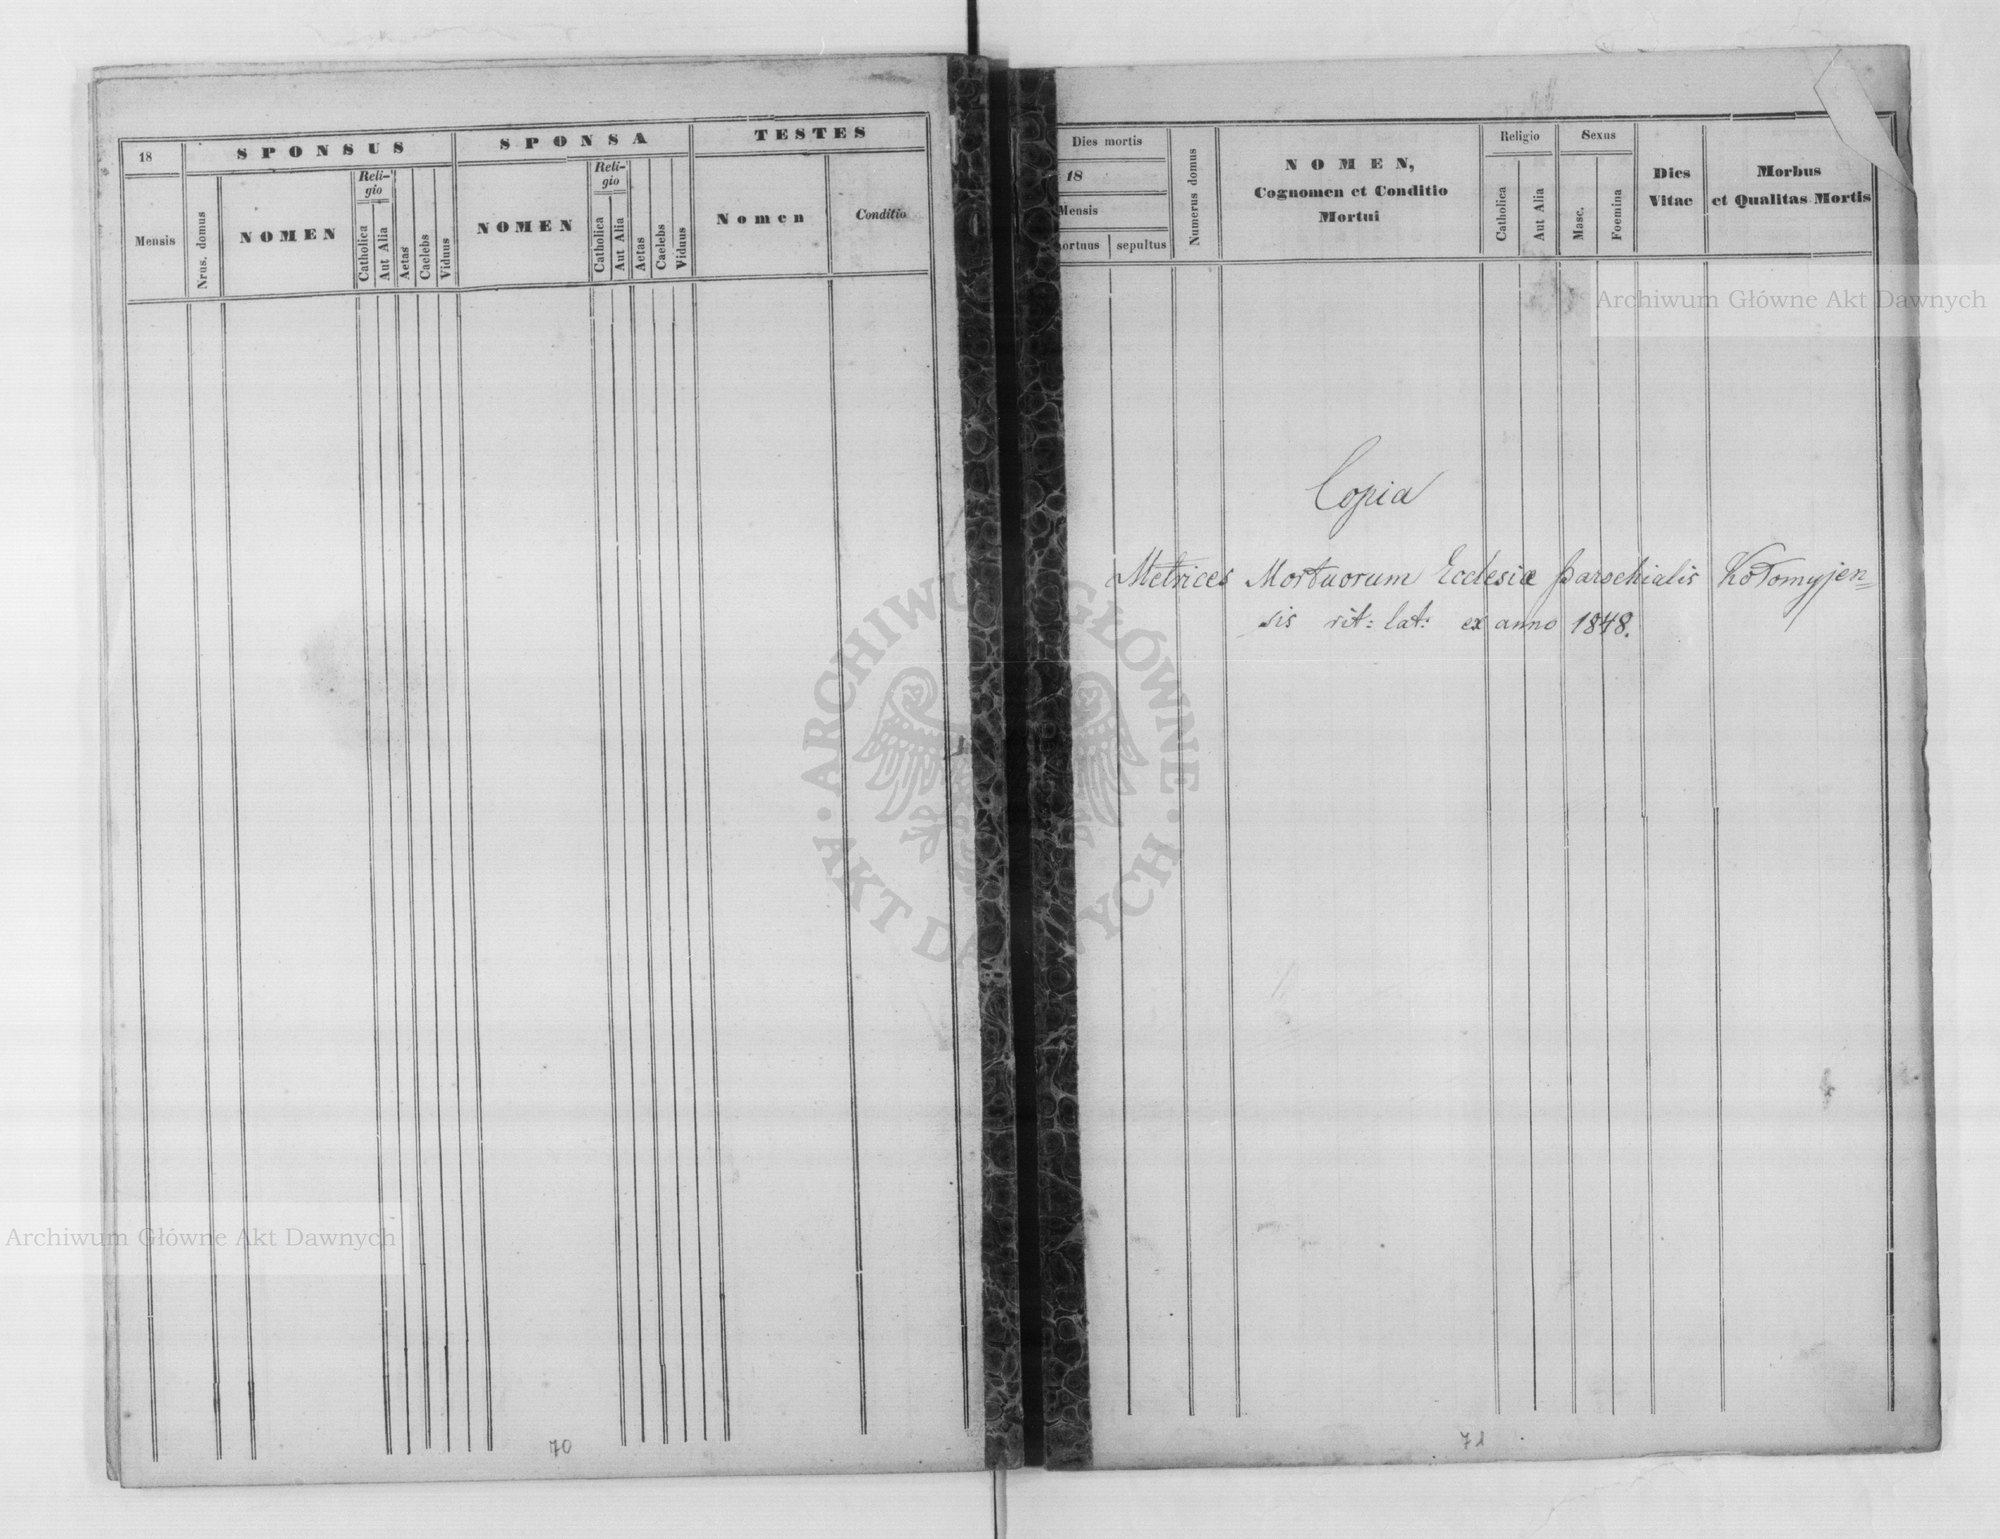 18
SPONSUS
SPONSA
TESTES
Mensis
Nrus. domus
NOMEN
Reli-
gio
Catholica
Aut Alia
Aetas
Caelebs
Viduus
NOMEN
Reli-
gio
Catholica
Aut Alia
Aetas
Caelebs
Viduus
Nomen
Conditio
70
Dies mortis
18
Mensis
ortuus
sepultus
Numerus domus
NOMEN,
Cognomen et Conditio
Mortui
Religio
Catholica
Aut Alia
Sexus
Masc.
Foemina
Dies
Vitae
Morbus
et Qualitas Mortis
Copia
Metrices Mortuorum Ecclesiæ parochialis Kołomyjen=
sis rit: lat: ex anno 1848.
71
Archiwum Główne Akt Dawnych
ARCHIWUM GŁÓWNE
· AKT DAWNYCH ·
Archiwum Główne Akt Dawnych